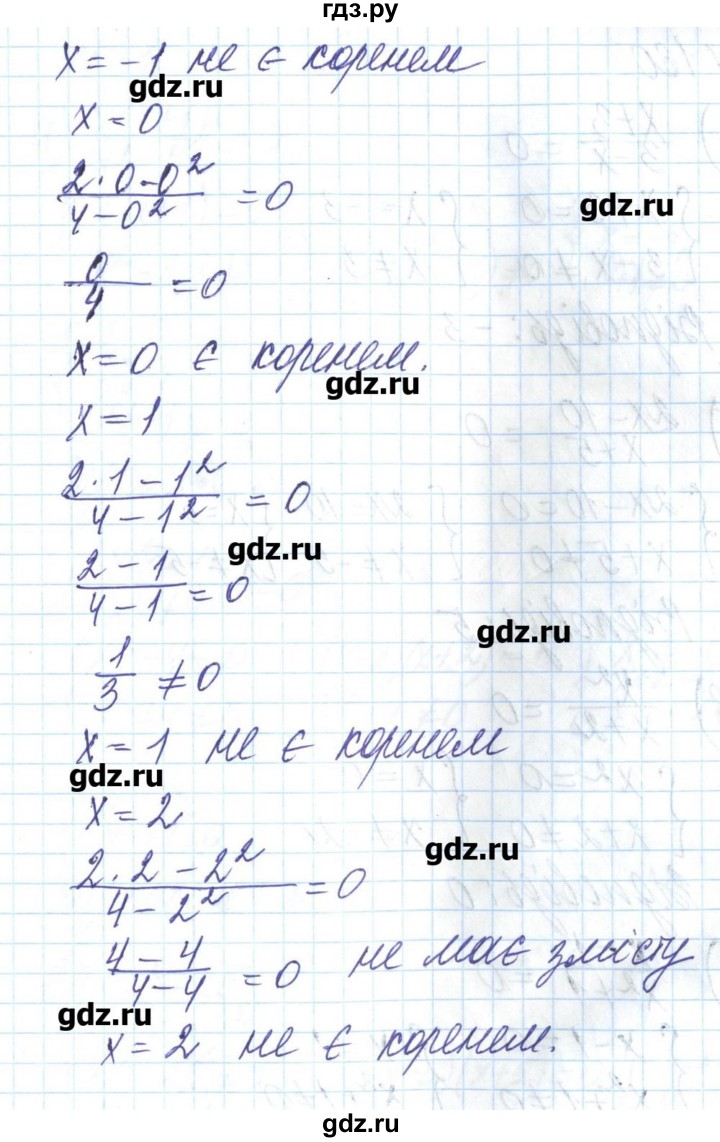 гдз.ру
x = -1 не є коренем
gdz.ru
x = 0
(2·0-0²)/(4-0²) = 0
gdz.ru
0/4 = 0
x = 0 є коренем.
gdz.ru
x = 1
(2·1-1²)/(4-1²) = 0
gdz.ru
(2-1)/(4-1) = 0
gdz.ru
1/3 ≠ 0
x = 1 не є коренем
gdz.ru
x = 2
gdz.ru
(2·2-2²)/(4-2²) = 0
(4-4)/(4-4) = 0 не має змісту
gdz.ru
x = 2 не є коренем.
gdz.ru